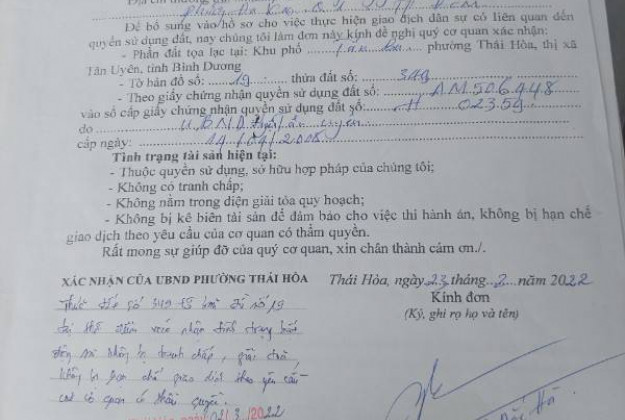 Để bổ sung vào hồ sơ cho việc thực hiện giao dịch dân sự có liên quan đến
quyền sử dụng đất, nay chúng tôi làm đơn này kính đề nghị quý cơ quan xác nhận:
- Phần đất tọa lạc tại: Khu phố phường Thái Hòa, thị xã
Tân Uyên, tỉnh Bình Dương
- Tờ bản đồ số: 19 thửa đất số: 349
- Theo giấy chứng nhận quyền sử dụng đất số: AM 506448
vào số cấp giấy chứng nhận quyền sử dụng đất số: H 02354
do U.B.N.D huyện Tân Uyên
cấp ngày: 14/04/2008
Tình trạng tài sản hiện tại:
- Thuộc quyền sử dụng, sở hữu hợp pháp của chúng tôi;
- Không có tranh chấp;
- Không nằm trong diện giải tỏa quy hoạch;
- Không bị kê biên tài sản để đảm bảo cho việc thi hành án, không bị hạn chế
giao dịch theo yêu cầu của cơ quan có thẩm quyền.
Rất mong sự giúp đỡ của quý cơ quan, xin chân thành cám ơn./.
XÁC NHẬN CỦA UBND PHƯỜNG THÁI HÒA
Thái Hòa, ngày 23 tháng 2 năm 2022
Kính đơn
(Ký, ghi rọ họ và tên)
Thửa đất số 349 tờ bản đồ số 19
tại thời điểm xác nhận tình trạng bất
động sản không bị tranh chấp, giải tỏa,
không bị hạn chế giao dịch theo yêu cầu
của cơ quan có thẩm quyền.